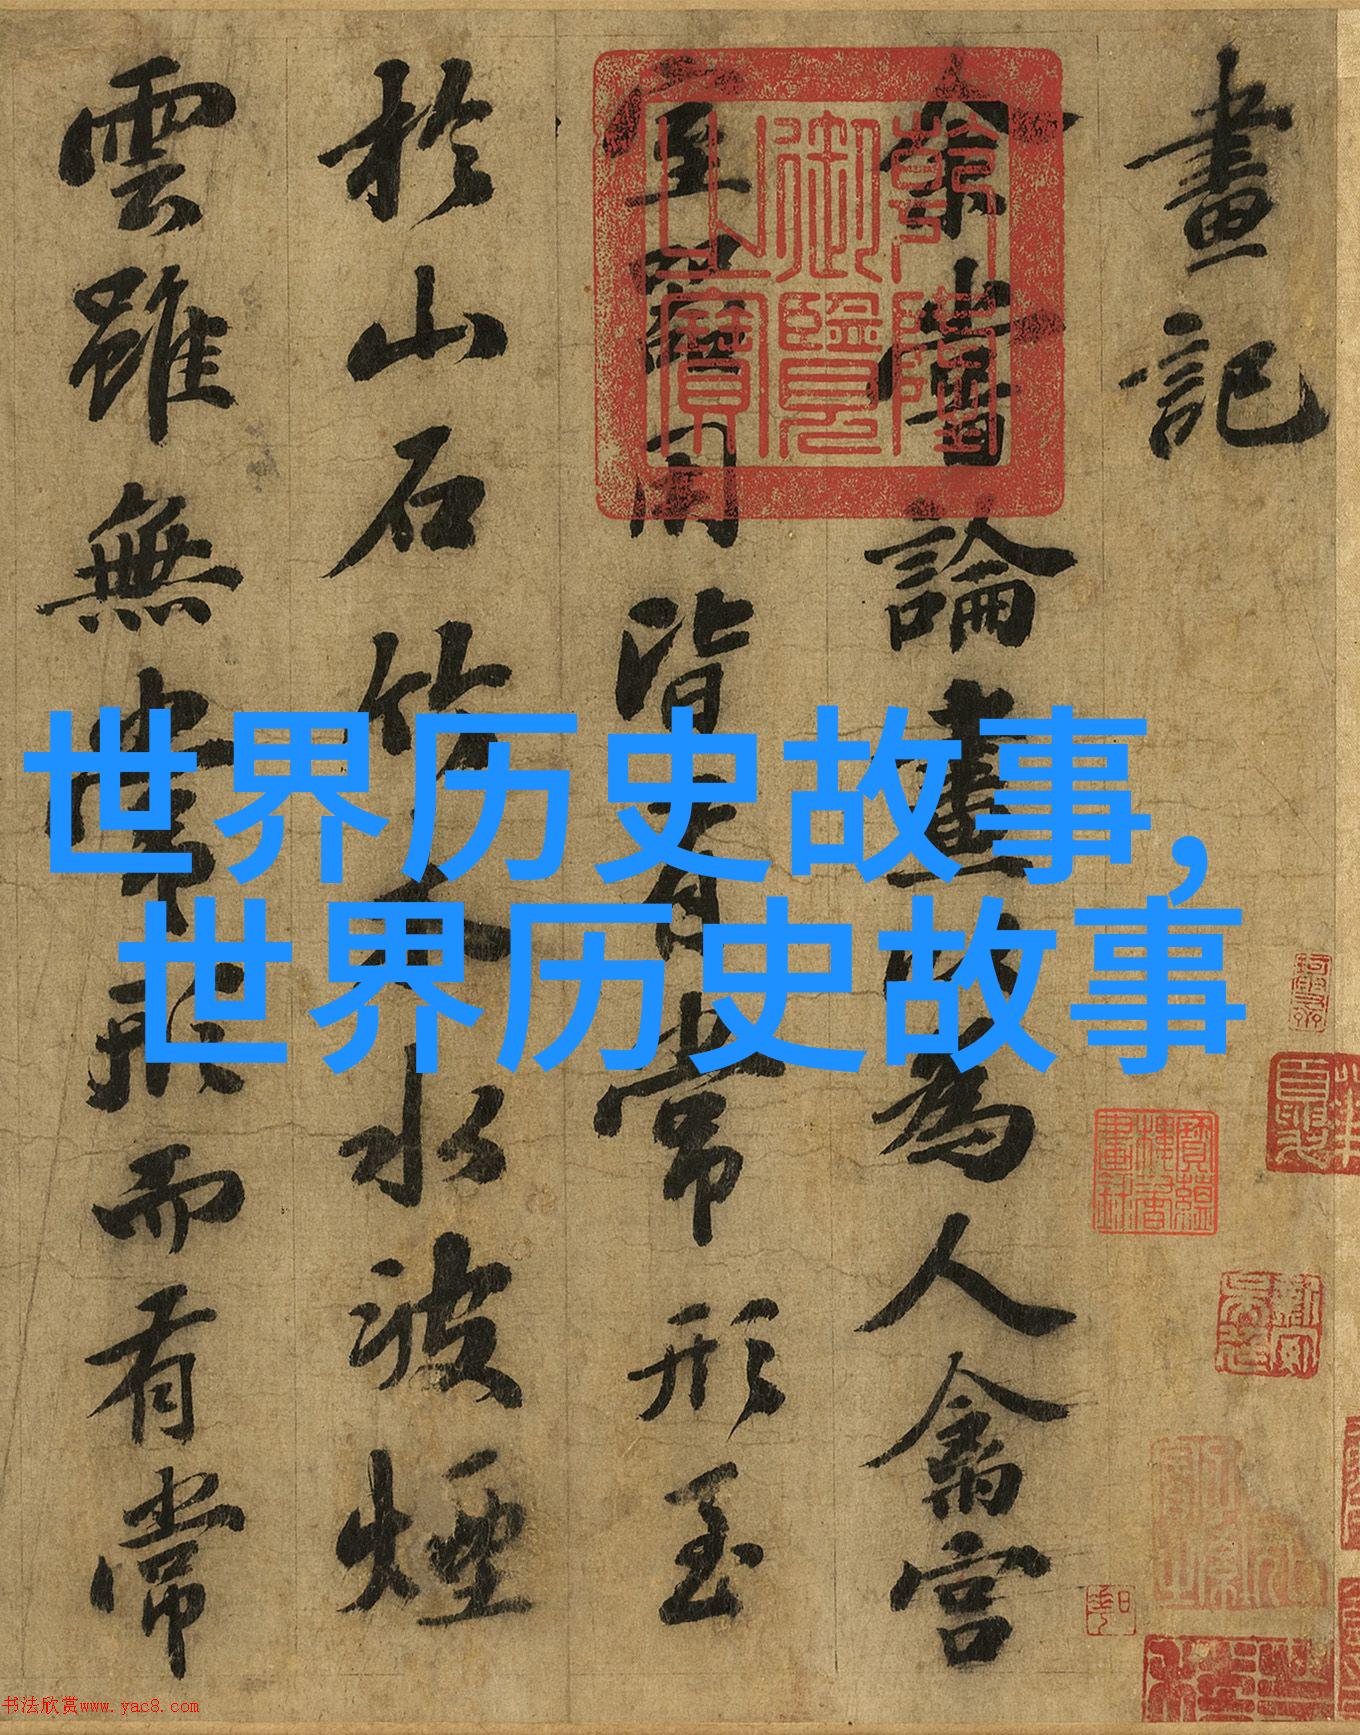 畫記
余嘗論畫以為人禽宮
室器用皆有常形至
於山石竹木水波煙
雲雖無常形而有常
乾隆御覽之寶
世界历史故事,
世界历史故事
书法欣赏www.yac8.com